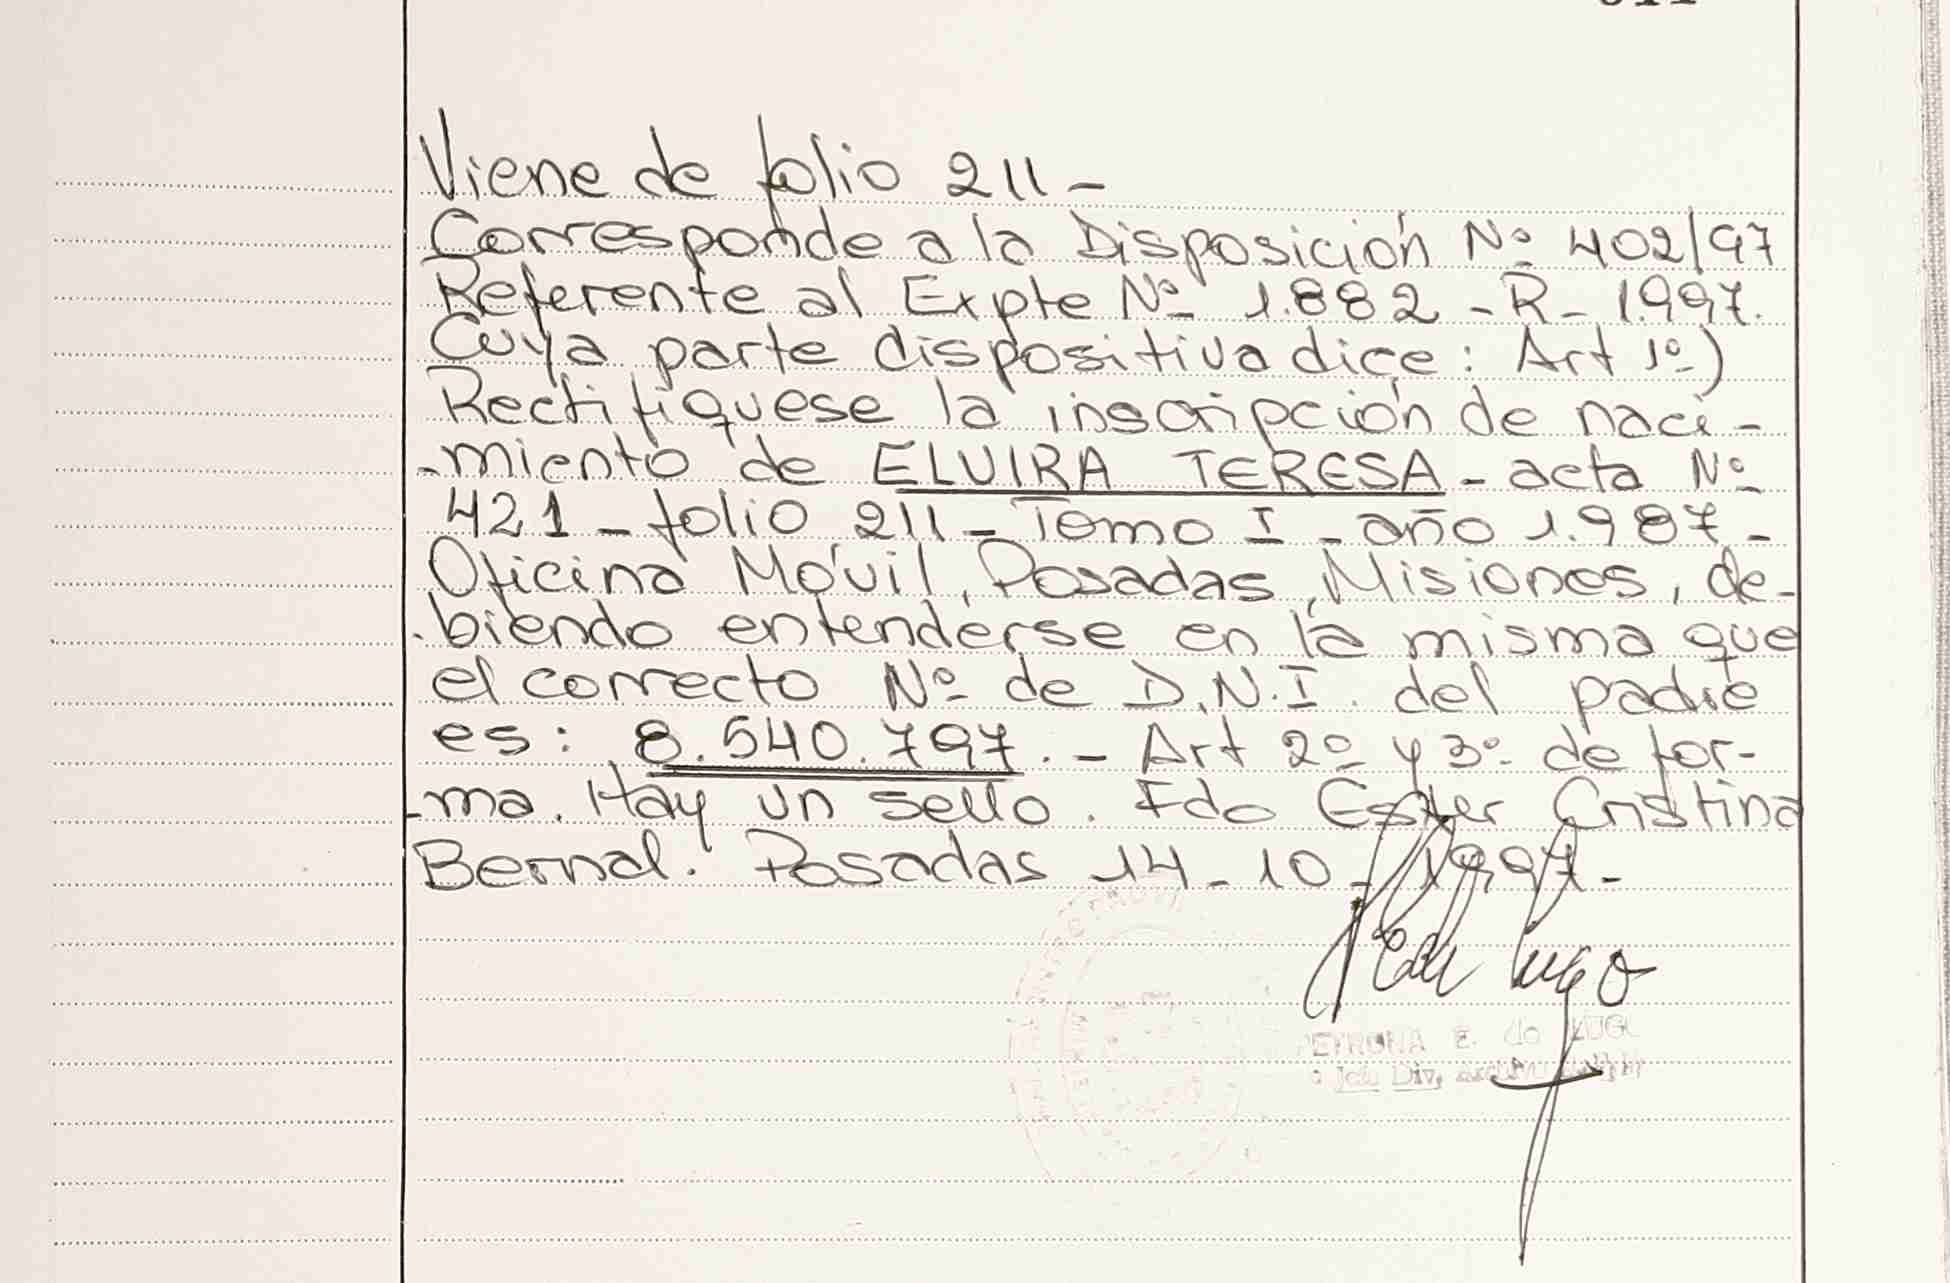 Viene de folio 211-
Corresponde a la Disposición Nº 402/97
Referente al Expte Nº 1.882 - R - 1.997.
Cuya parte dispositiva dice: Art 1º)
Rectifiquese la inscripción de naci-
-miento de ELVIRA TERESA - acta Nº
421 - folio 211 - Tomo I - año 1.987 -
Oficina Móvil, Posadas, Misiones, de-
biendo entenderse en la misma que
el correcto Nº de D.N.I. del padre
es: 8.540.797. - Art 2º y 3º de for-
-ma. Hay un sello. Fdo Ester Cristina
Bernal. Posadas 14-10-1997.-
E. de LUGO
Div.